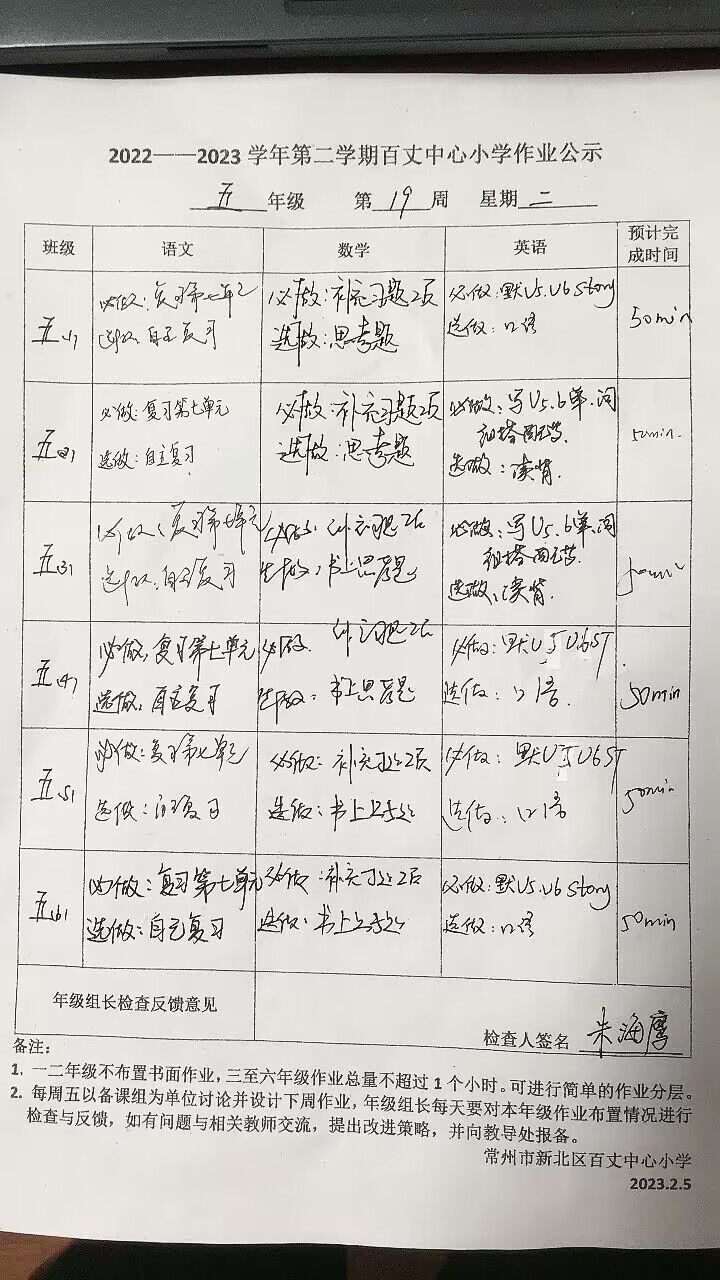 2022——2023 学年第二学期百丈中心小学作业公示
五 年级 第 19 周 星期 二
班级 语文 数学 英语 预计完成时间
五(1)
必做：复习第七单元
选做：自主复习
必做：补充习题2页
选做：思考题
必做：默U5.U6 Story
选做：口语
50min
五(2)
必做：复习第七单元
选做：自主复习
必做：补充习题2页
选做：思考题
必做：写U5.6单.词
选做：读背.
50min.
五(3)
必做：复习第七单元
选做：自主复习
必做：补习题2页
选做：书上思考题
必做：写U5.6单.词
选做：读背.
五(4)
必做：复习第七单元
选做：自主复习
必做：补习题2页
选做：书上思考题
必做：默U5U6ST
选做：口语.
50min
五(5)
必做：复习第七单元
选做：自主复习
必做：补充习题2页
选做：书上思考题
必做：默U5U6ST
选做：口语
50min
五(6)
必做：复习第七单元
选做：自主复习
必做：补充习题2页
选做：书上思考题
必做：默U5.U6 Story
选做：口语
50min
年级组长检查反馈意见
检查人签名 朱海鹰
备注：
1. 一二年级不布置书面作业，三至六年级作业总量不超过 1 个小时。可进行简单的作业分层。
2. 每周五以备课组为单位讨论并设计下周作业，年级组长每天要对本年级作业布置情况进行
检查与反馈，如有问题与相关教师交流，提出改进策略，并向教导处报备。
常州市新北区百丈中心小学
2023.2.5